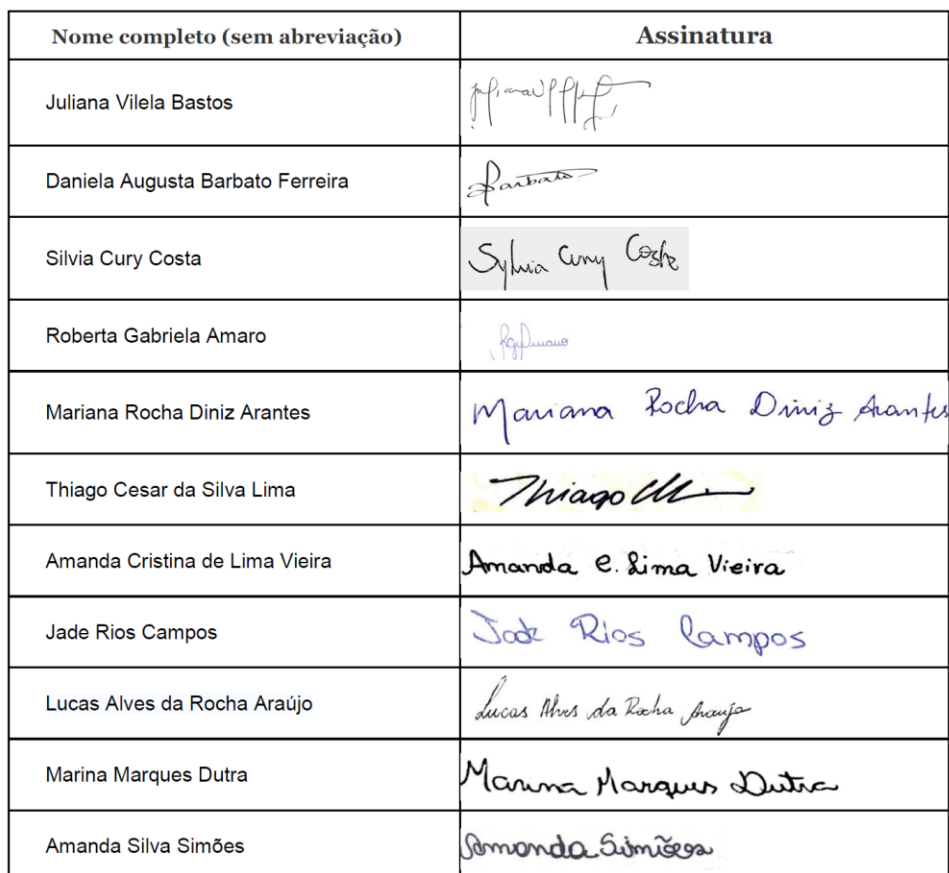 Nome completo (sem abreviação) Assinatura
Juliana Vilela Bastos
Daniela Augusta Barbato Ferreira Barbato
Silvia Cury Costa Sylvia Cury Costa
Roberta Gabriela Amaro
Mariana Rocha Diniz Arantes Mariana Rocha Diniz Arantes
Thiago Cesar da Silva Lima Thiago
Amanda Cristina de Lima Vieira Amanda C. Lima Vieira
Jade Rios Campos Jade Rios Campos
Lucas Alves da Rocha Araújo Lucas Alves da Rocha Araujo
Marina Marques Dutra Marina Marques Dutra
Amanda Silva Simões Amanda Simões